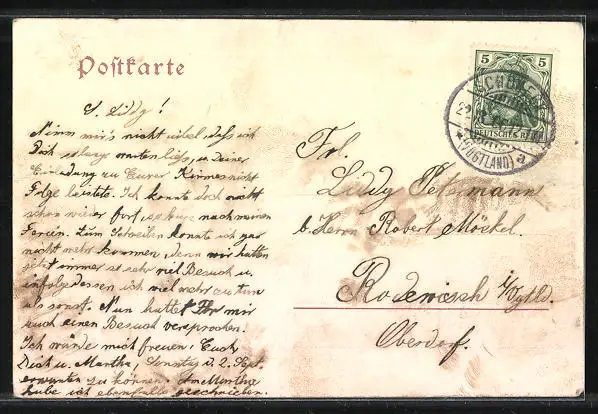 Postkarte
5 5
DEUTSCHES REICH
(VOGTLAND) a
L. Liddy!
Nimm mir's nicht übel, daß ich
Dich so lang warten ließ, u. deiner
Einladung zu Eurer Kirmes nicht
Folge leistete. Ich konnte doch nicht
schon wieder fort, so kurz nach meinen
Ferien. Zum Schreiben konnte ich gar
nicht mehr kommen, denn wir hatten
jetzt immer so sehr viel Besuch u.
infolgedessen ich viel mehr zu tun
als sonst. Nun hattet Ihr mir
auch einen Besuch versprochen.
Ich würde mich freuen, Euch
Dich u. Martha, Sonntag d. 2. Sept.
erwarten zu können. Martha
habe ich ebenfalls geschrieben.
Frl.
Liddy Petermann
b. Herrn Robert Möckel.
Rodewisch i/Vgtld.
Oberdorf.